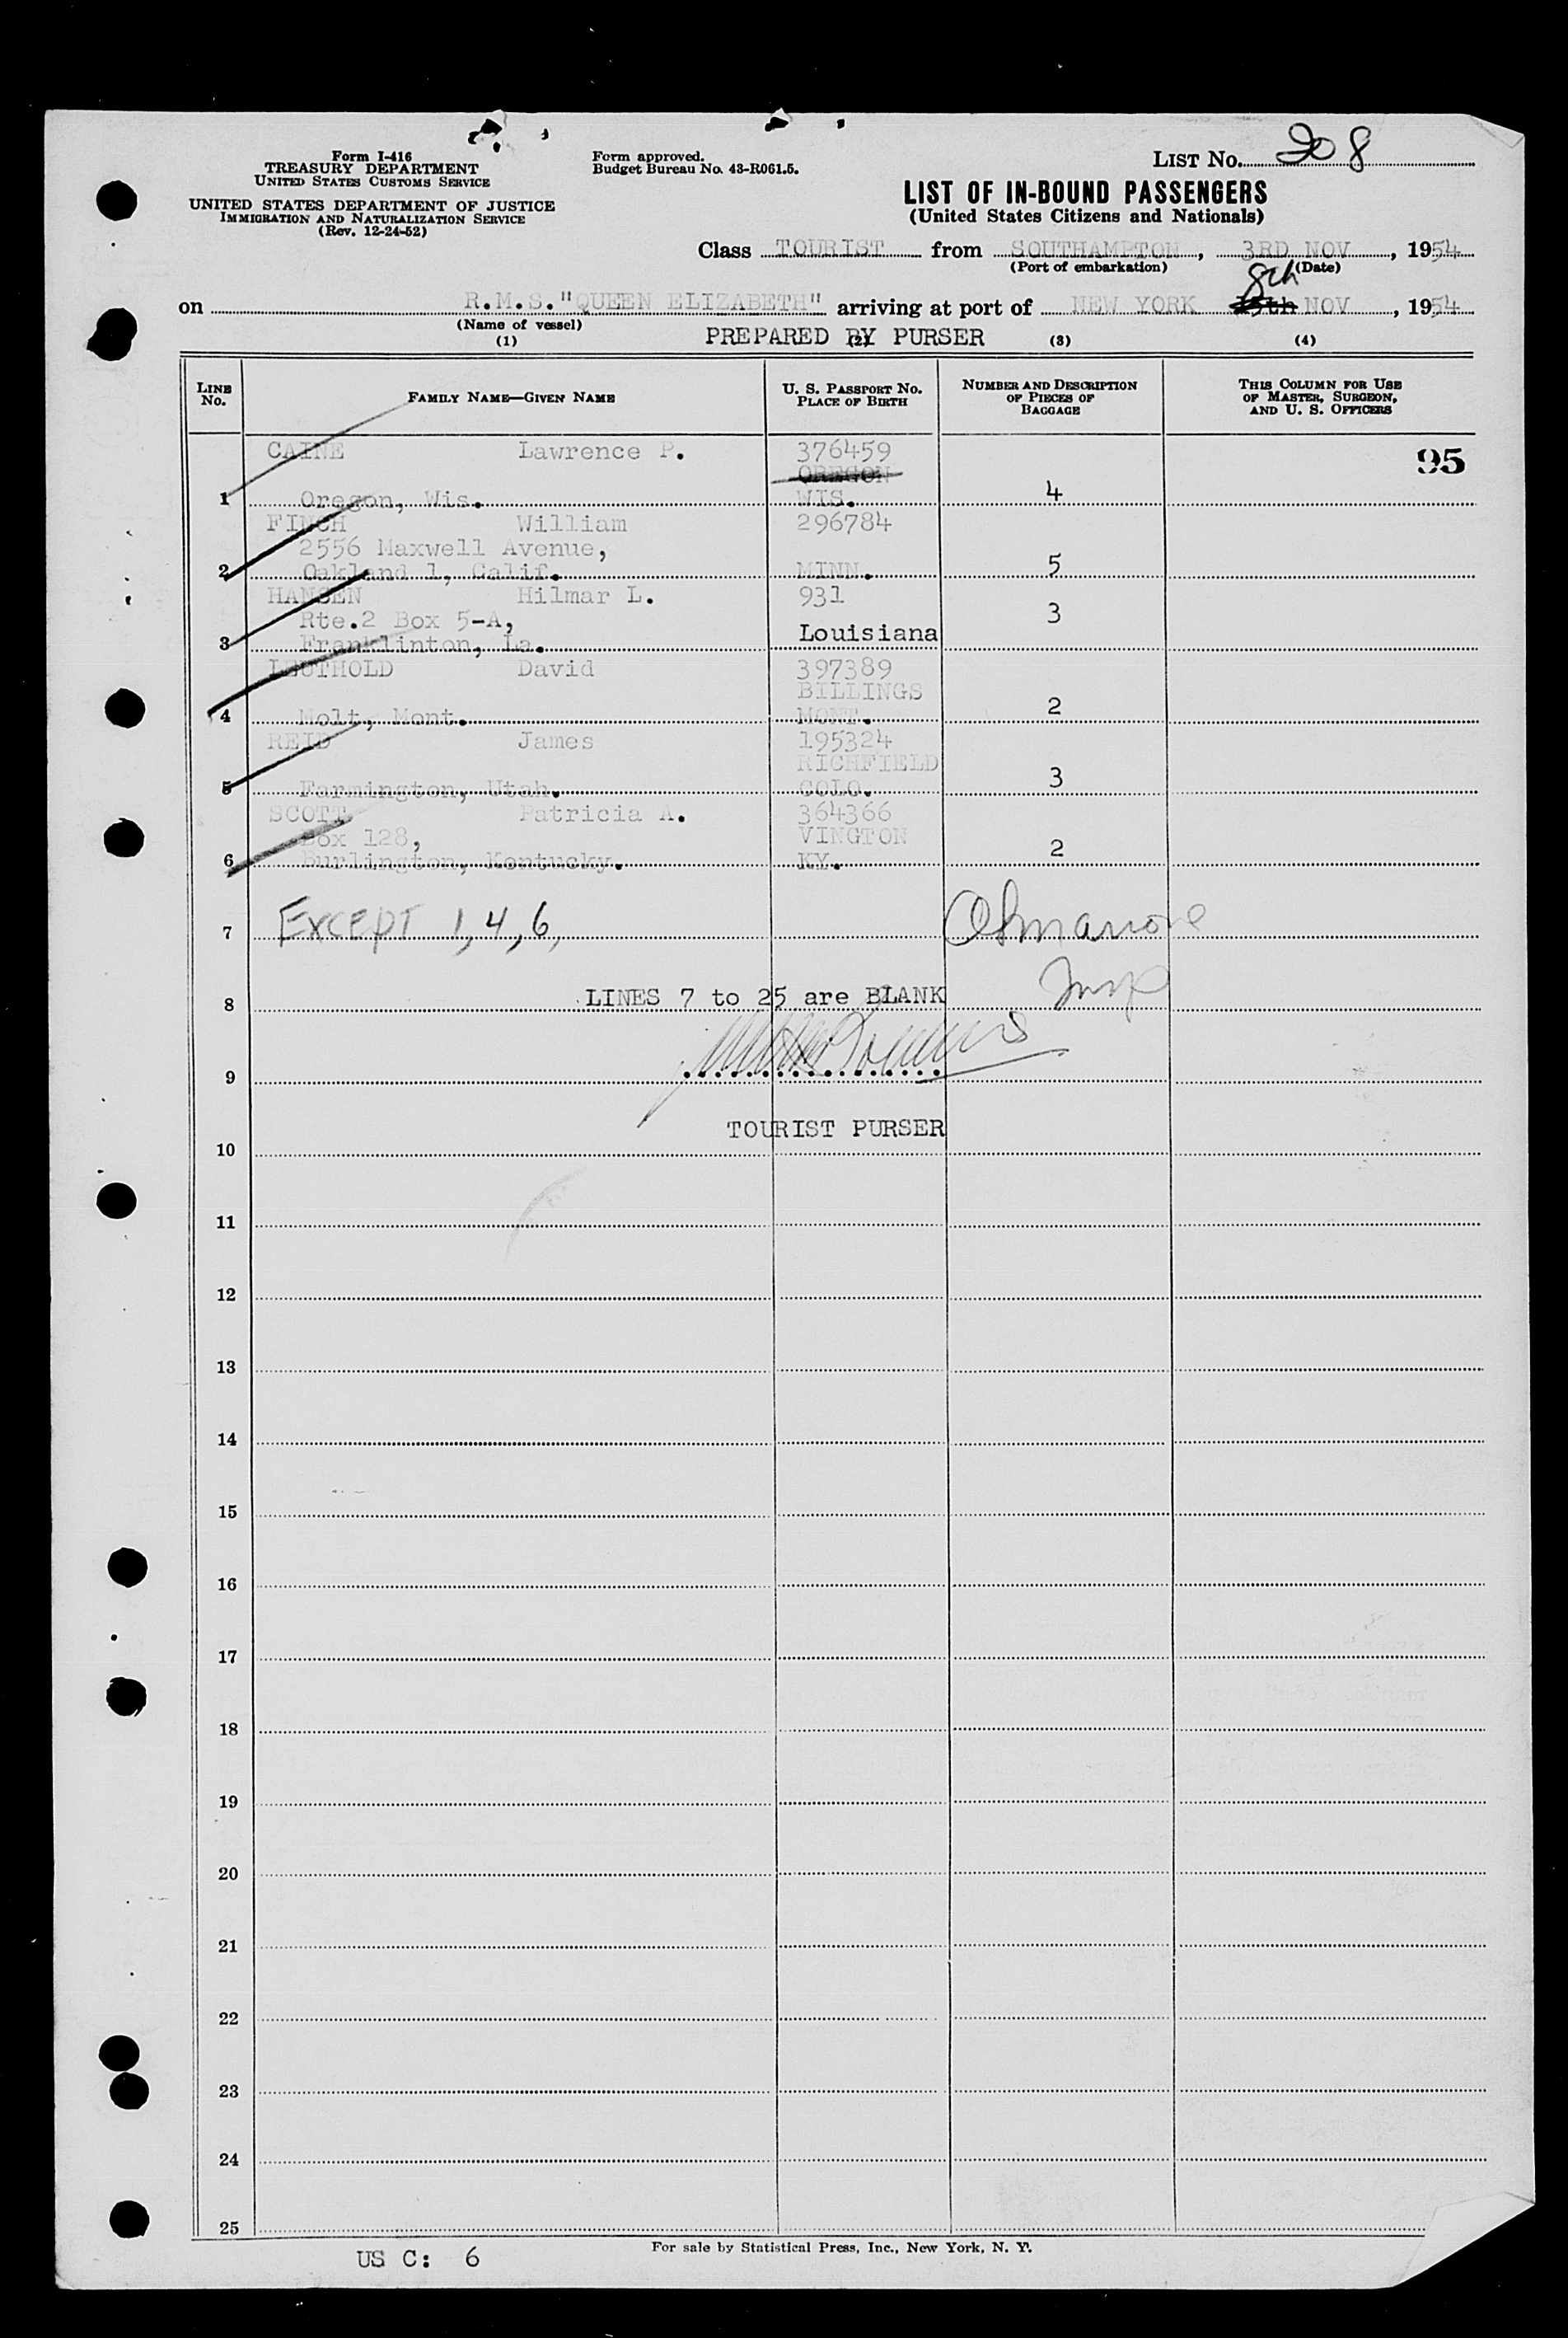 Form I-416
TREASURY DEPARTMENT
UNITED STATES CUSTOMS SERVICE
UNITED STATES DEPARTMENT OF JUSTICE
IMMIGRATION AND NATURALIZATION SERVICE
(Rev. 12-24-52)
Form approved.
Budget Bureau No. 43-R061.5.
LIST No. 20 8
LIST OF IN-BOUND PASSENGERS
(United States Citizens and Nationals)
Class TOURIST from SOUTHAMPTON, 3RD NOV, 1954
(Port of embarkation) (Date)
8th
on R.M.S."QUEEN ELIZABETH" arriving at port of NEW YORK NOV, 1954
(Name of vessel)
PREPARED BY PURSER
(1) (2) (3) (4)
LINE No. FAMILY NAME—GIVEN NAME U. S. PASSPORT NO. PLACE OF BIRTH NUMBER AND DESCRIPTION OF PIECES OF BAGGAGE THIS COLUMN FOR USE OF MASTER, SURGEON, AND U. S. OFFICERS
CAINE Lawrence P. 376459 95
OREGON
1 Oregon, Wis. WIS. 4
FINCH William 296784
2556 Maxwell Avenue,
2 Oakland 1, Calif. MINN. 5
HANSEN Hilmar L. 931
Rte.2 Box 5-A, 3
3 Franklinton, La. Louisiana
LEUTHOLD David 397389
BILLINGS
4 Molt, Mont. MONT. 2
REID James 195324
RICHFIELD
5 Farmington, Utah. COLO. 3
SCOTT Patricia A. 364366
Box 128, VINGTON
6 Burlington, Kentucky. KY. 2
7 EXCEPT 1, 4, 6,
8 LINES 7 to 25 are BLANK Insp
9
TOURIST PURSER
10
11
12
13
14
15
16
17
18
19
20
21
22
23
24
25
US C: 6
For sale by Statistical Press, Inc., New York, N. Y.